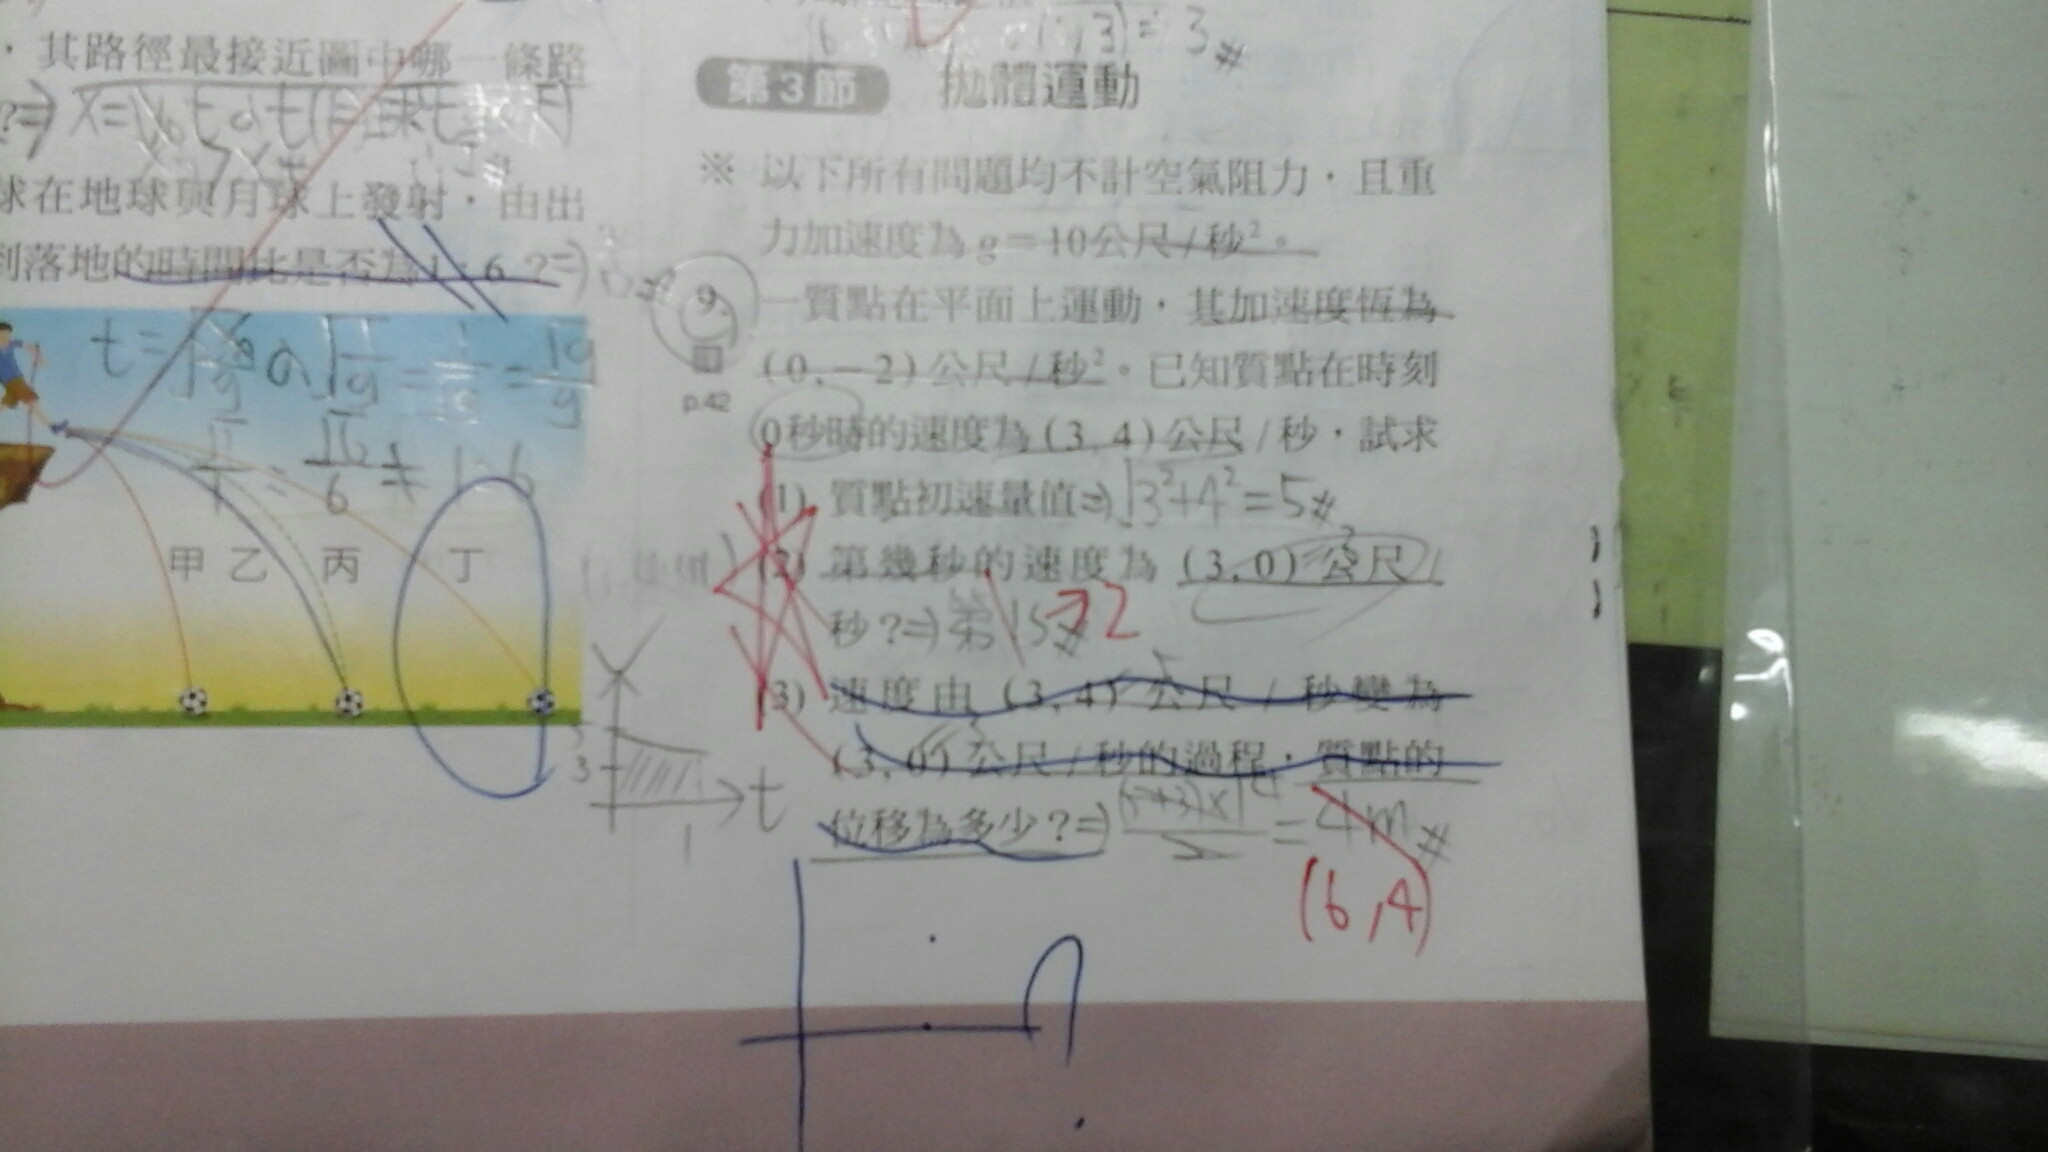 ，其路徑最接近圖中哪一條路
球在地球與月球上發射，由出
到落地的時間比是否為1：6？⇒
甲 乙 丙 丁
3 #
第3節 拋體運動
※ 以下所有問題均不計空氣阻力，且重
力加速度為 g＝10公尺/秒²。
9. 一質點在平面上運動，其加速度恆為
(0,－2)公尺/秒²。已知質點在時刻
p.42
0秒時的速度為(3,4)公尺/秒，試求
(1) 質點初速量值⇒√3²+4²=5#
(2) 第幾秒的速度為(3,0)公尺/
秒？⇒第1s# 2
(3) 速度由(3,4)公尺/秒變為
(3,0)公尺/秒的過程，質點的
位移為多少？⇒ (5+3)×1 = 4m#
(6,4)
3
t
1
?